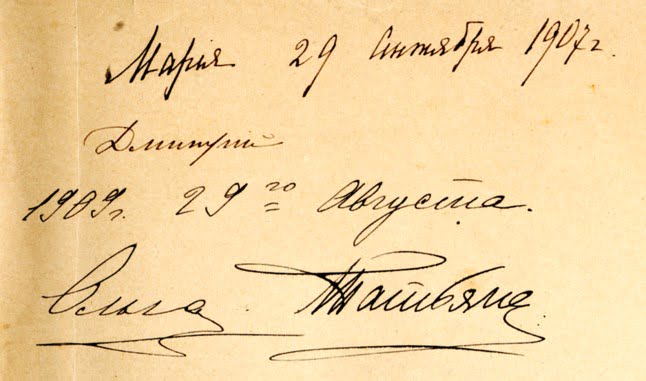 Мария 29 Сентября 1907г.
Дмитрий
1909г. 29го Августа.
Ольга Татьяна